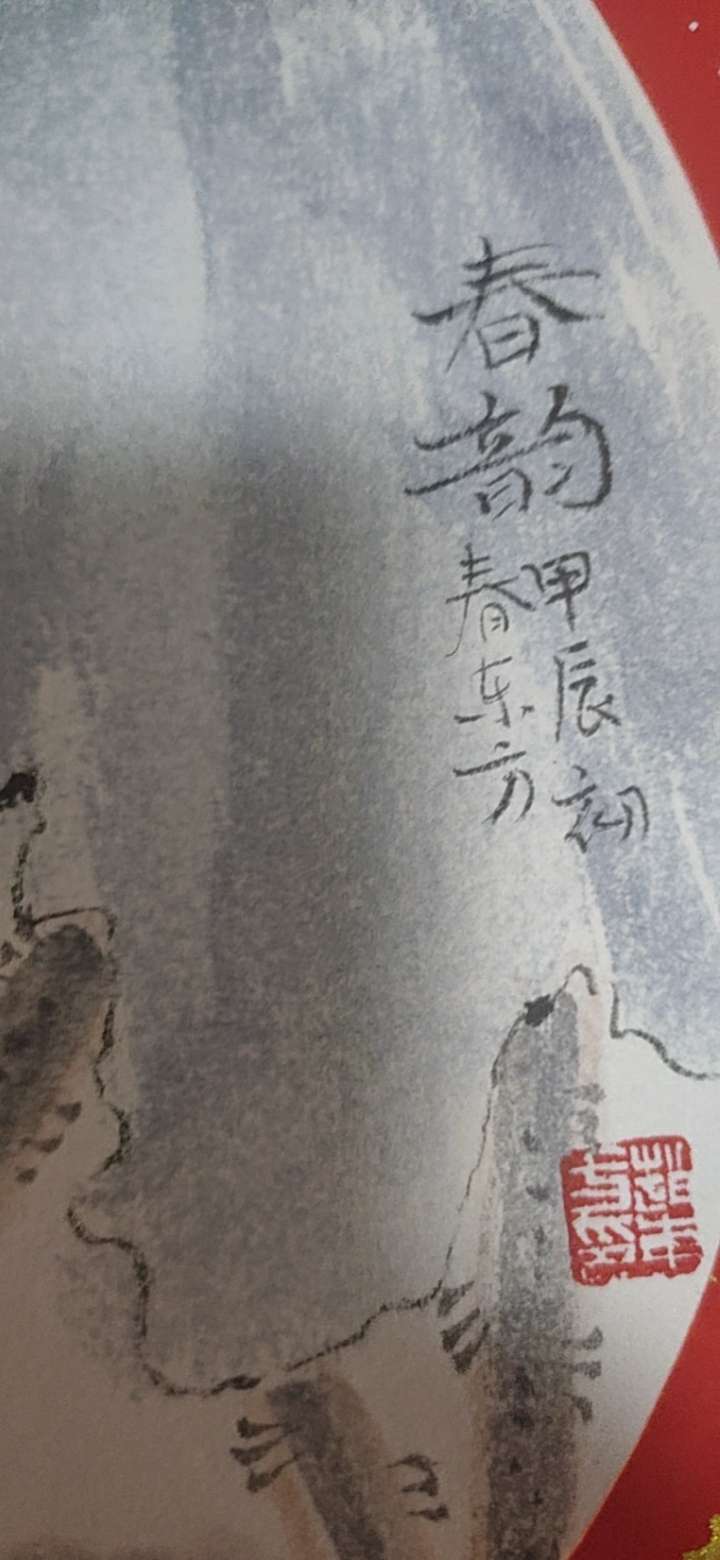 春韵
甲辰初
春东方